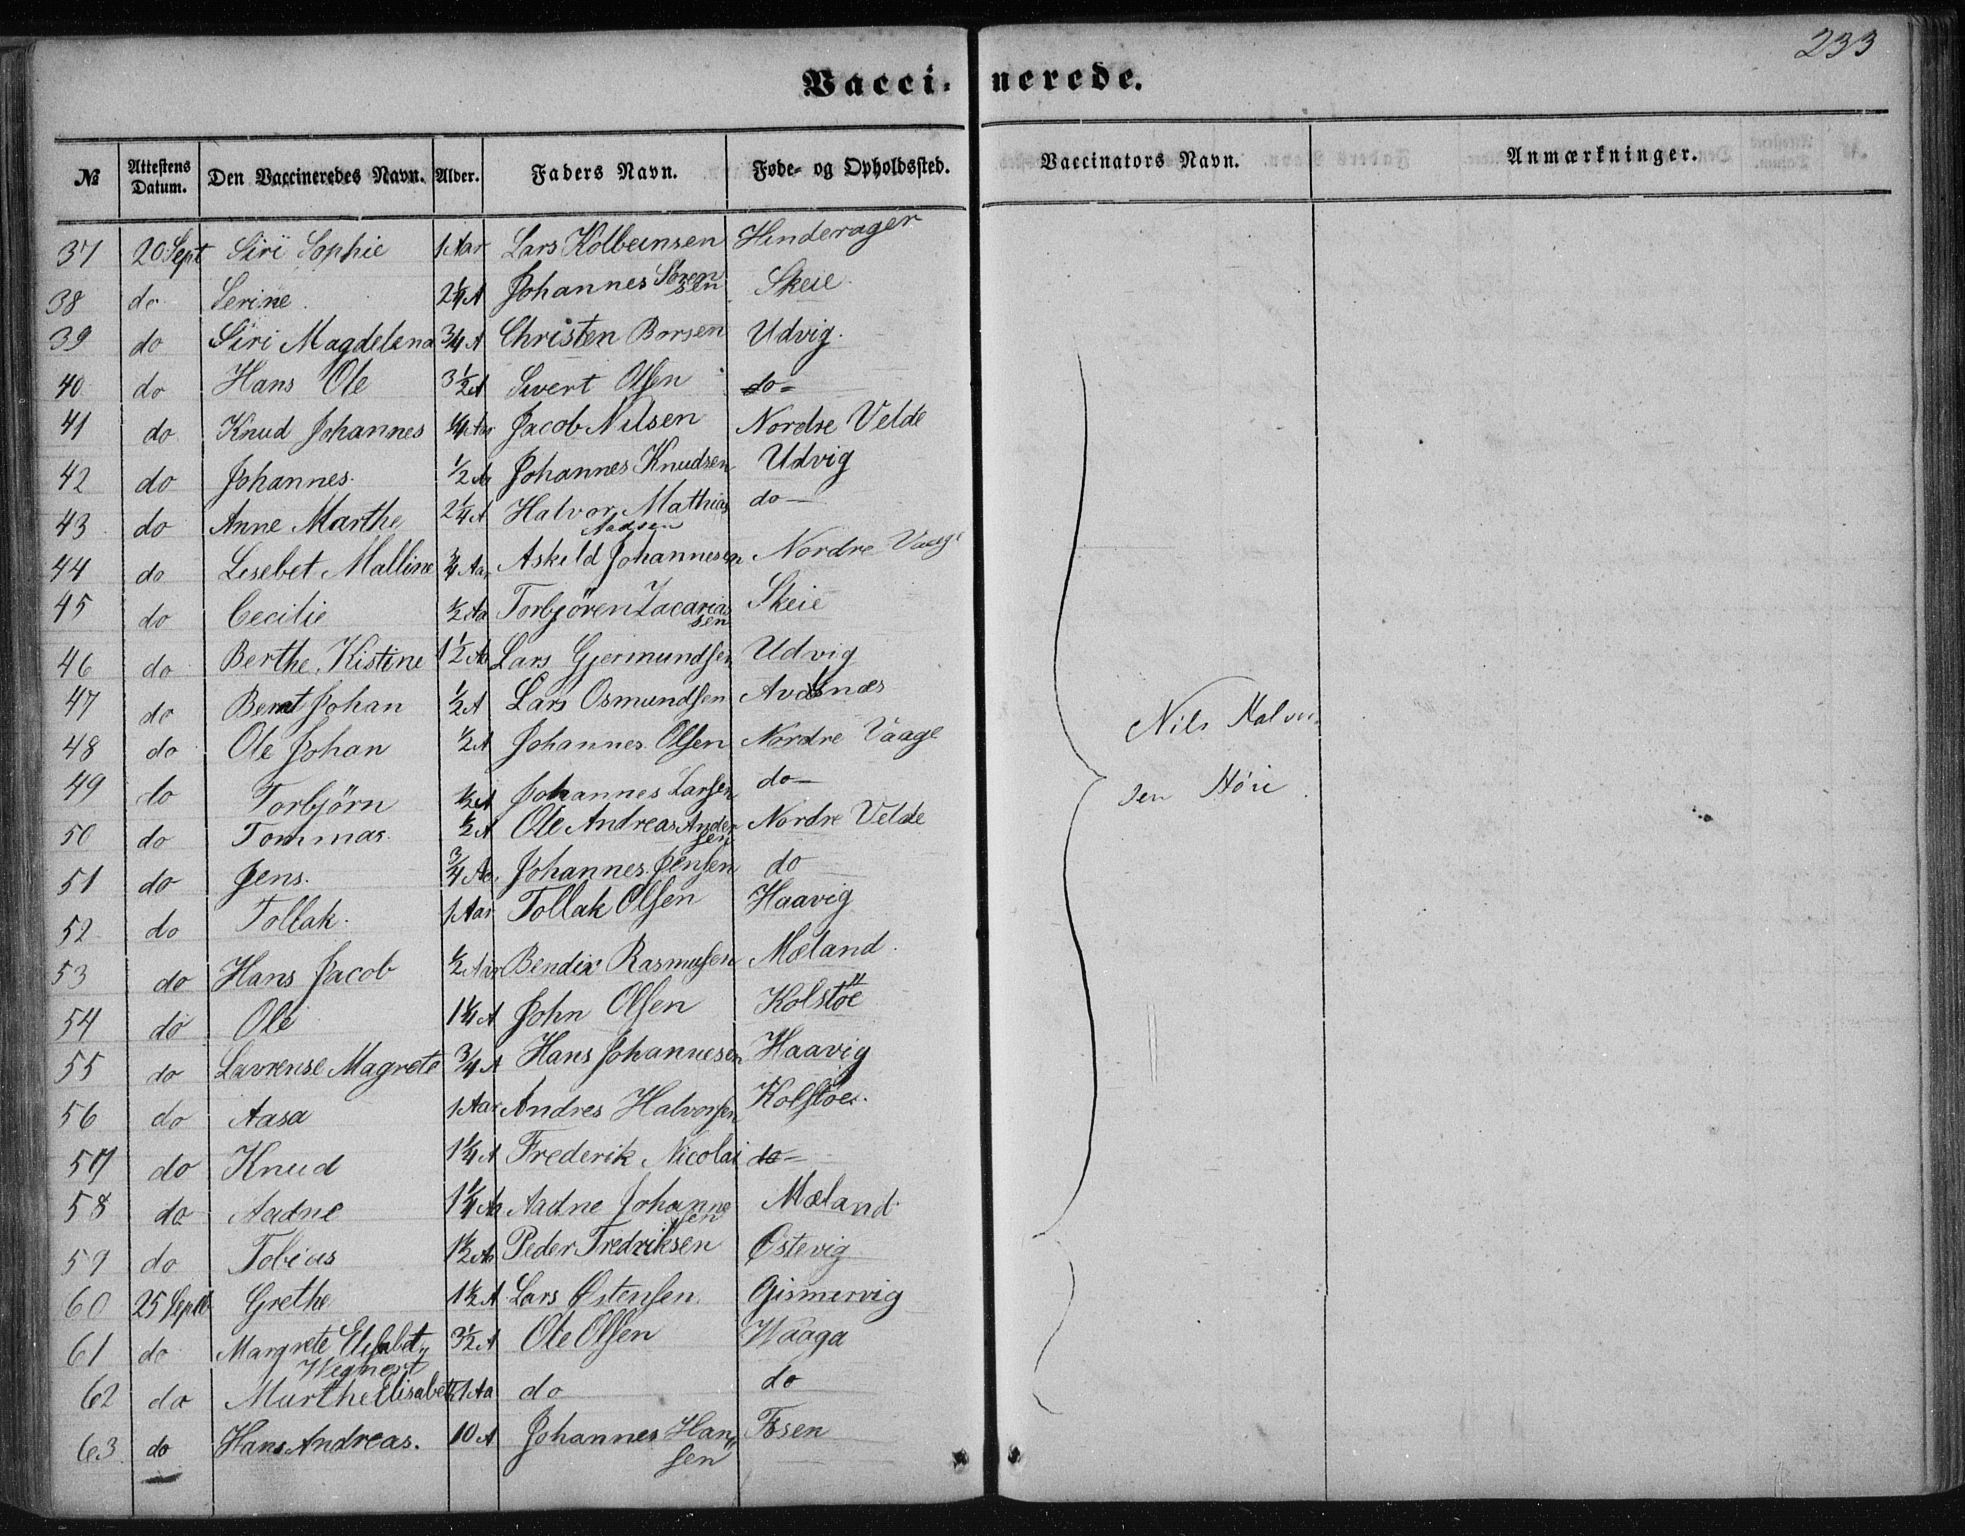 233
Vacci-nerede.
№ Attestens Datum. Den Vaccineredes Navn. Alder. Faders Navn. Føde- og Opholdssted. Vaccinators Navn. Anmærkninger.
37 20 Sept Siri Sophie 1 Aar Lars Kolbeinsen Hinderager
38 do Serine 2 1/4 A Johannes Sörensen Skeie
39 do Siri Magdelena 3/4 A Christen Borsen Udvig
40 do Hans Ole 3 1/2 A Sivert Olsen do
41 do Knud Johannes 1/4 Aar Jacob Nilsen Nordre Velde
42 do Johannes 1/2 Aa Johannes Knudsen Udvig
43 do Anne Marthe 2 1/4 A Halvor Mathias Madsen do
44 do Lisebet Malline 3/4 Aar Askild Johannesen Nordre Vaage
45 do Cecilie 1/2 Aa Torbjören Zacariassen Skeie
46 do Berthe Kistine 1 1/2 Aa Lars Gjermundsen Udvig
47 do Bernt Johan 1/2 A Lars Osmundsen Avaldsnæs
48 do Ole Johan 1/2 A Johannes Olsen Nordre Vaage
49 do Torbjörn 1/2 A Johannes Larsen do
50 do Tommas 1/2 A Ole Andreas Andersen Nordre Velde
51 do Jens 3/4 Aa Johannes Jensen do
52 do Tollak 1 Aar Tollak Olsen Haavig
53 do Hans Jacob 1/2 Aar Bendix Rasmusen Mæland
54 do Ole 1 1/4 A John Olsen Kolstöe
55 do Lavrense Magrete 3/4 A Hans Johannesen Haavig
56 do Aasa 1 Aar Andres Halvorsen Kolstöe
57 do Knud 1 1/4 A Frederik Nicolai do
58 do Aadne 1 1/4 Aa Aadne Johannesen Mæland
59 do Tobias 1 1/2 Aa Peder Fredriksen Østevig
60 25 Septb Grethe 1 1/2 A Lars Østensen Gismervig
61 do Margrete Elisabet 3 1/2 A Ole Olsen Waaga
62 do Marthe Elisabeth 1 Aa do do
63 do Hans Andreas 10 A Johannes Hansen Fosen
Nils Halvor
sen Höie